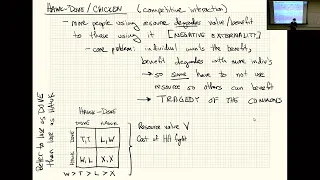 HAWK-DOVE / CHICKEN (competitive interaction)
- more people using resource degrades value/benefit
to those using it [NEGATIVE EXTERNALITY]
- core problem: individual wants the benefit,
benefit degrades with more indiv's
→ so some have to not use
resource so others can benefit
→ TRAGEDY OF THE COMMONS
Better to use as DOVE
than lose as HAWK
HAWK-DOVE
DOVE HAWK
DOVE T,T L,W
HAWK W,L X,X
W > T > L > X
Resource value V
Cost of HH fight